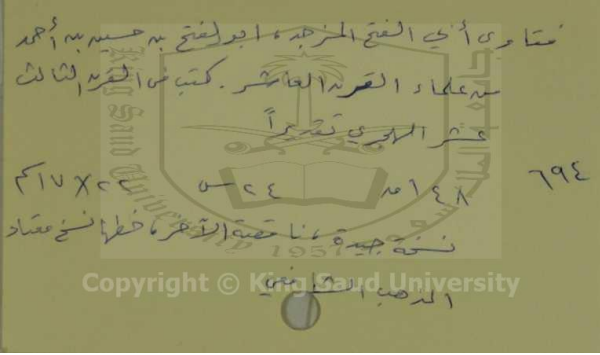 فتاوى أبي الفتح المزجد، ابو الفتح بن حسين بن أحمد
من علماء القرن العاشر. كتب في القرن الثالث
عشر الهجري تقديراً
٦٩٤
١٤٨ ق ٢٤ س ٢٢×١٧ سم
نسخة جيدة، ناقصة الآخر، خطها نسخ معتاد
المذهب الشافعي
Copyright © King Saud University
King Saud University
1957